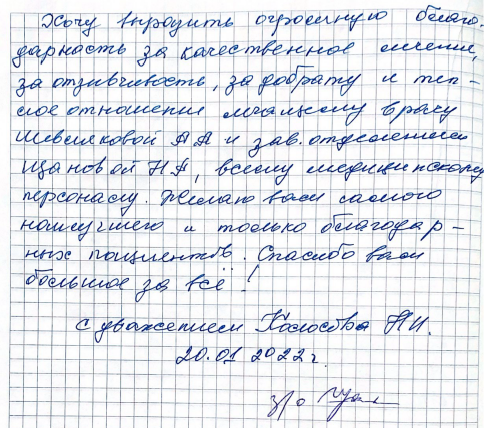 Хочу выразить огромную благо-
дарность за качественное лечение,
за отзывчивость, за доброту и теп-
лое отношение лечащему врачу
Шевелковой А А и зав. отделением
Н.А, всему медицинскому
персоналу. Желаю вам самого
наилучшего и только благодар-
ных пациентов. Спасибо вам
большое за всё!
с уважением Колосова Н И.
20.01 2022 г.
з/о